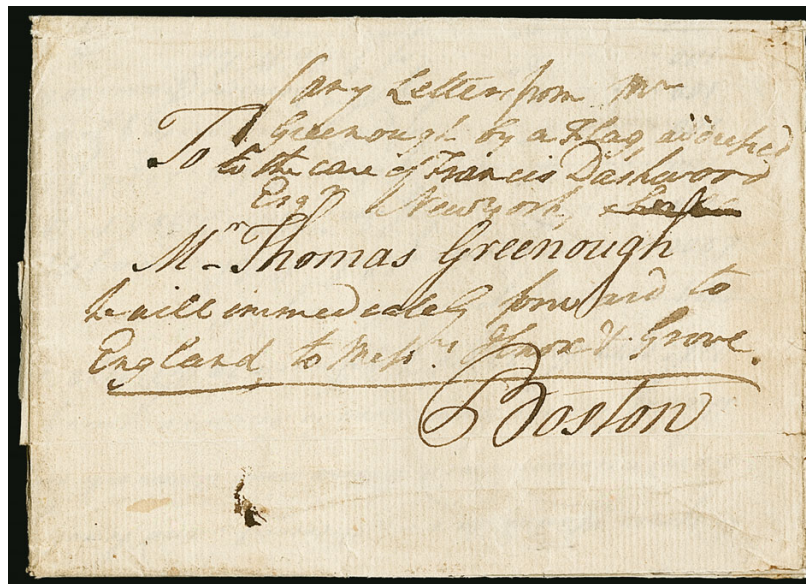 any Letter from Mr
Greenough by a Flag, addressed
To
to the care of Francis Dashwood
Esqr New York,
Mr Thomas Greenough
he will immediately forward to
England, to Messrs & Grove.
Boston